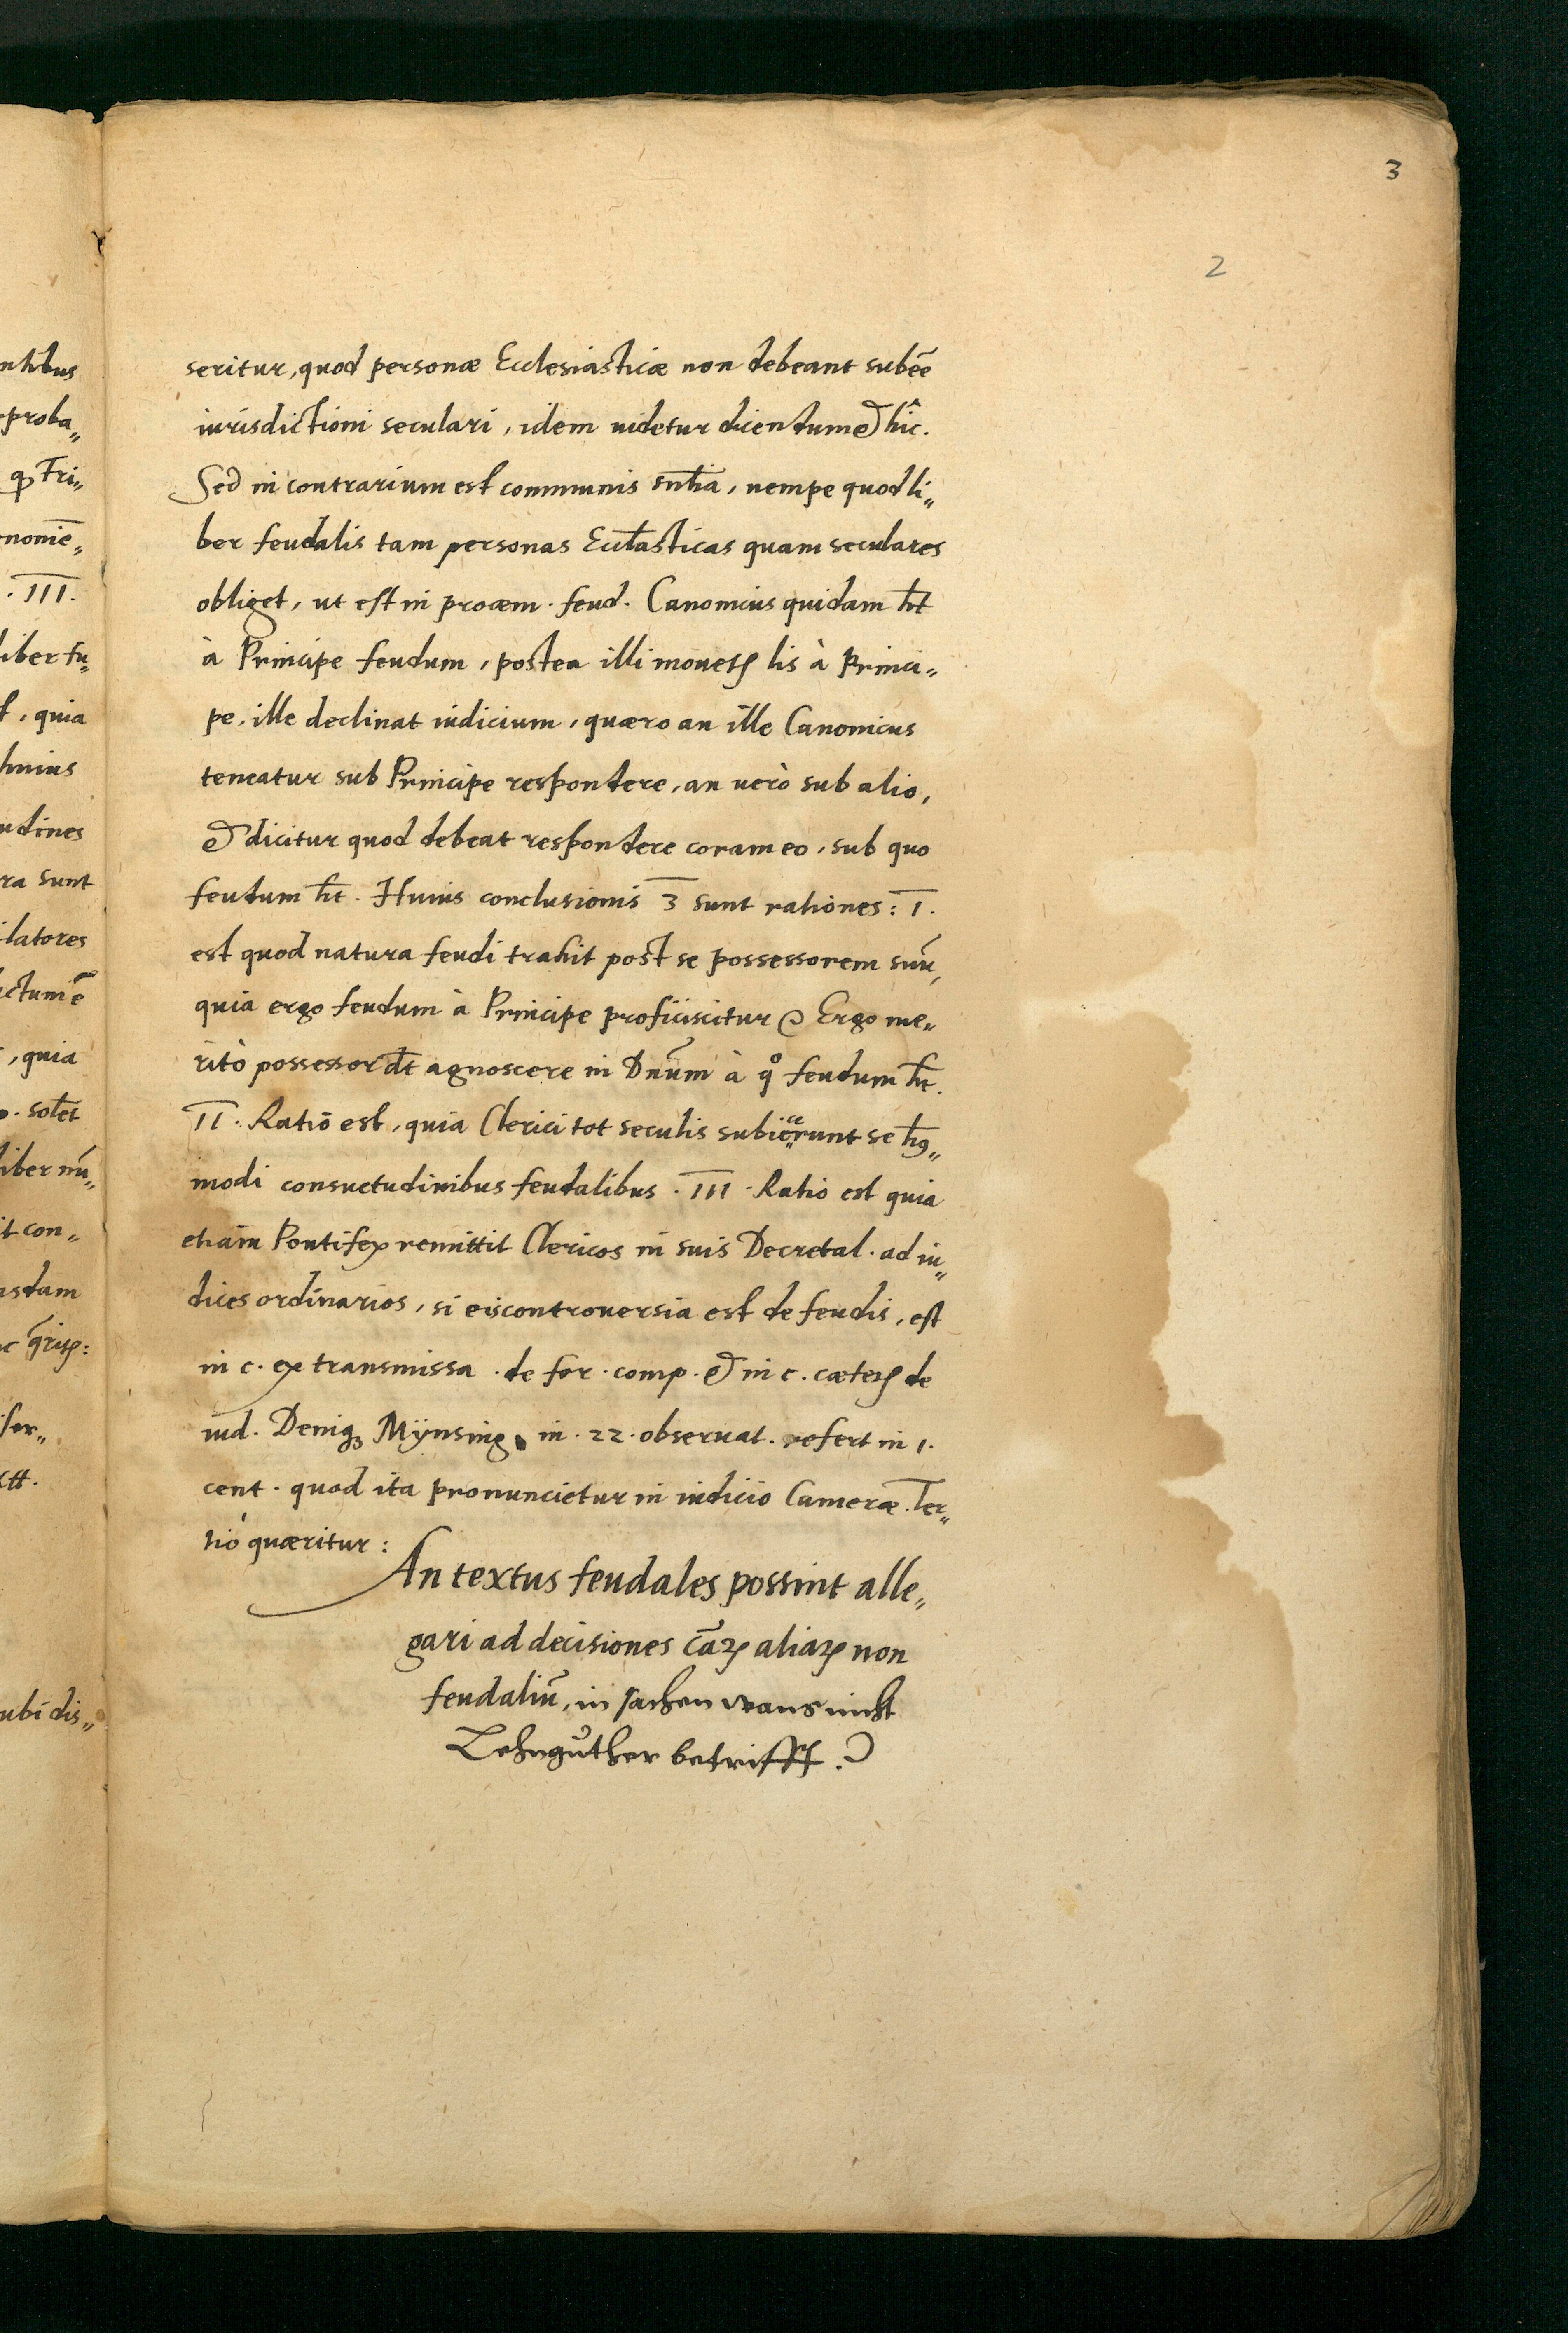 3
2
seritur, quod personæ Ecclesiasticæ non debeant subēe
iurisdictioni seculari, idem uidetur dicendum & hîc.
Sed in contrarium est communis sn̄tia, nempe quod li„
ber feudalis tam personas Eccl̄asticas quam seculares
obliget, ut est in proœm. feud. Canonicus quidam h̄t
à Principe feudum, postea illi mouetꝭ lis à Princi„
pe, ille declinat iudicium, quæro an ille Canonicus
teneatur sub Principe respondere, an uerò sub alio,
& dicitur quod debeat respondere coram eo, sub quo
feudum h̄t. Huius conclusionis 3 sunt rationes: I.
est quod natura feudi trahit post se possessorem suū,
quia ergo feudum à Principe proficiscitur & Ergo me„
ritò possessor d̄t agnoscere in Dn̄um à qͦ feudum h̄t.
II. Ratio est, quia Clerici tot seculis subiecerunt se hꝰ„
modi consuetudinibus feudalibus. III. Ratio est quia
etiam Pontifex remittit Clericos in suis Decretal. ad iu„
dices ordinarios, si eis controuersia est de feudis, est
in c. ex transmissa. de for. comp. & in c. cæteꝝ de
iud. Deniqꝫ Mÿnsing. in. 22. obseruat. refert in 1.
cent. quod ita pronuncietur in iudicio Cameræ. Ter„
tiò quæritur:
An textus feudales possint alle„
gari ad decisiones cāꝝ aliaꝝ non
feudaliū, in sachen wans nicht
Lehngüther betrifft.?
ntibus
proba„
ꝙ Tri„
nonīe„
. III.
liber fu„
, quia
udines
ra sunt
latores
ctum ē
, quia
. sol̄et
liber nū„
it con„
usdam
ubi dis„